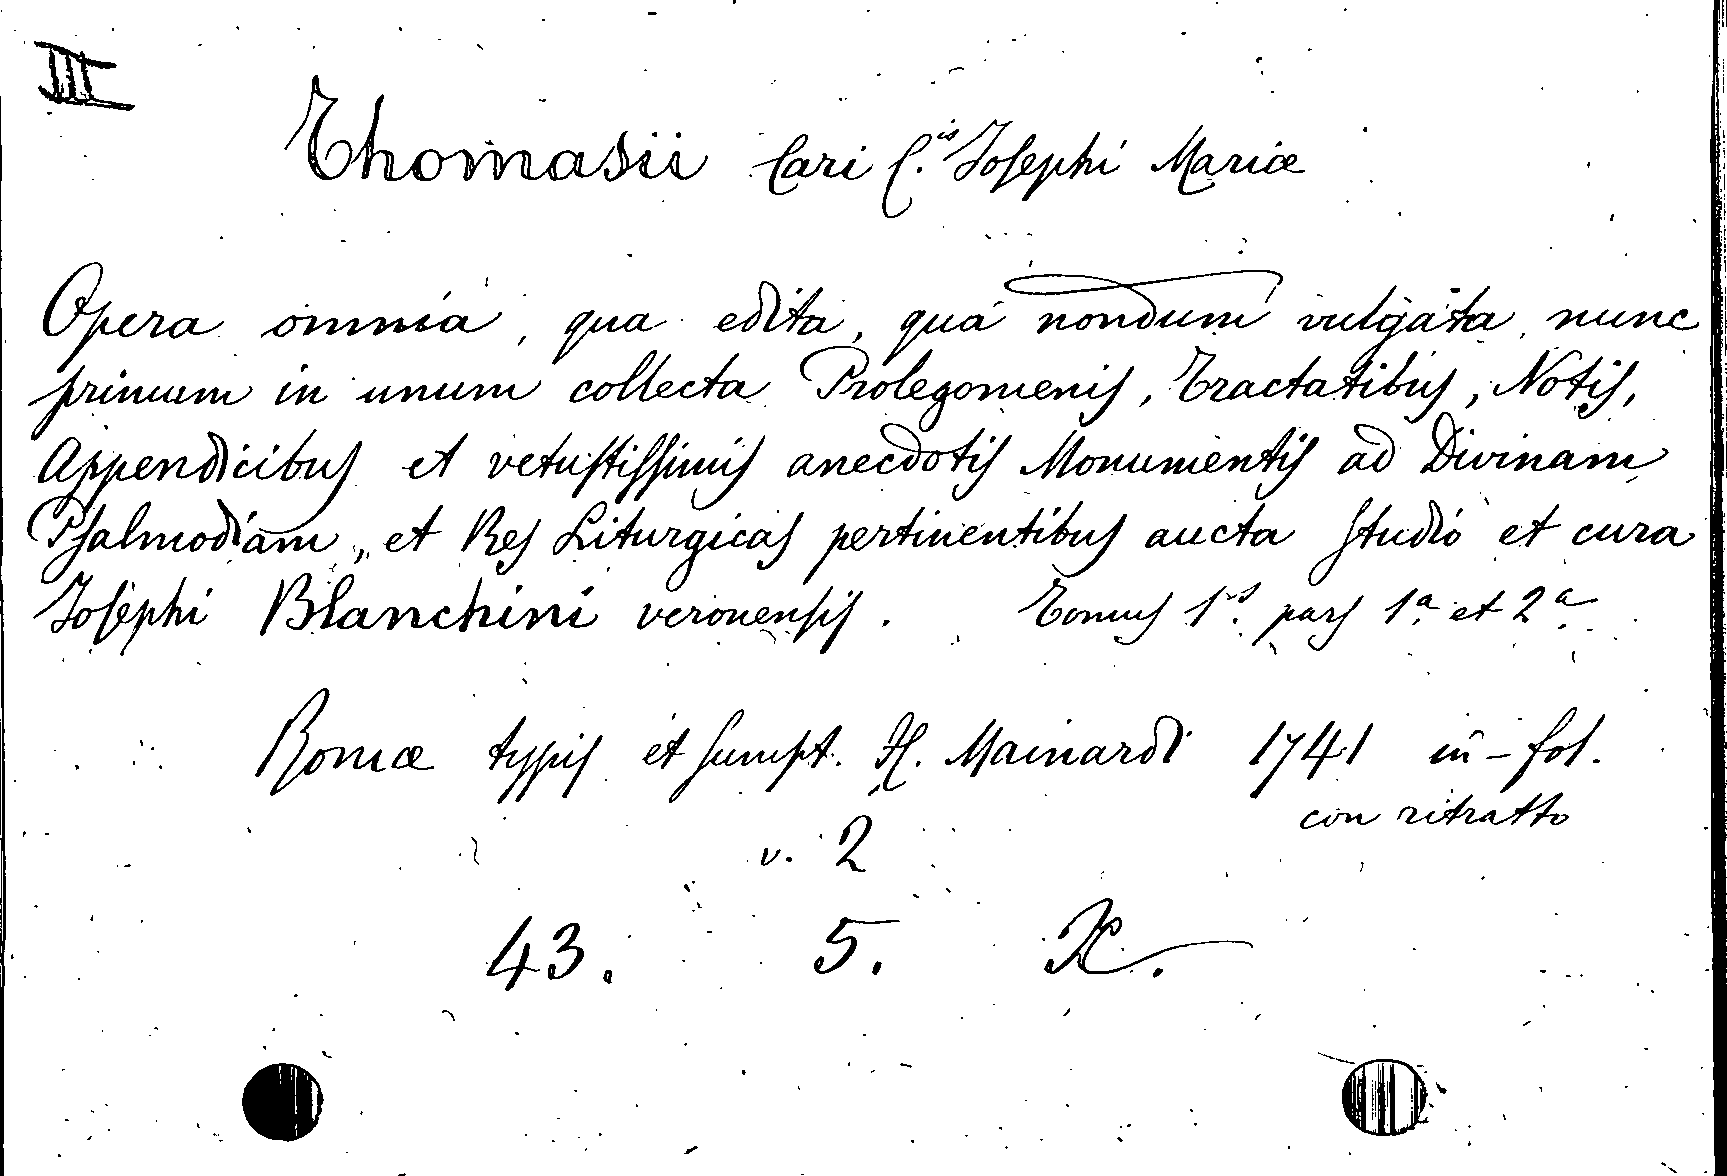 III
Thomasii Cari C.is Josephi Mariæ
Opera omnia, qua edita, qua nondum vulgata nunc
primum in unum collecta Prolegomenis, Tractatibus, Notis,
Appendicibus et vetustissimis anecdotis Monumentis ad Divinam
Psalmodiam, et Res Liturgicas pertinentibus aucta studio et cura
Josephi Blanchini veronensis. Tomus 1.s pars 1.a et 2.a
Romæ typis et sumpt. H. Mainardi 1741 in-fol.
con ritratto
v. 2
43. 5. K.